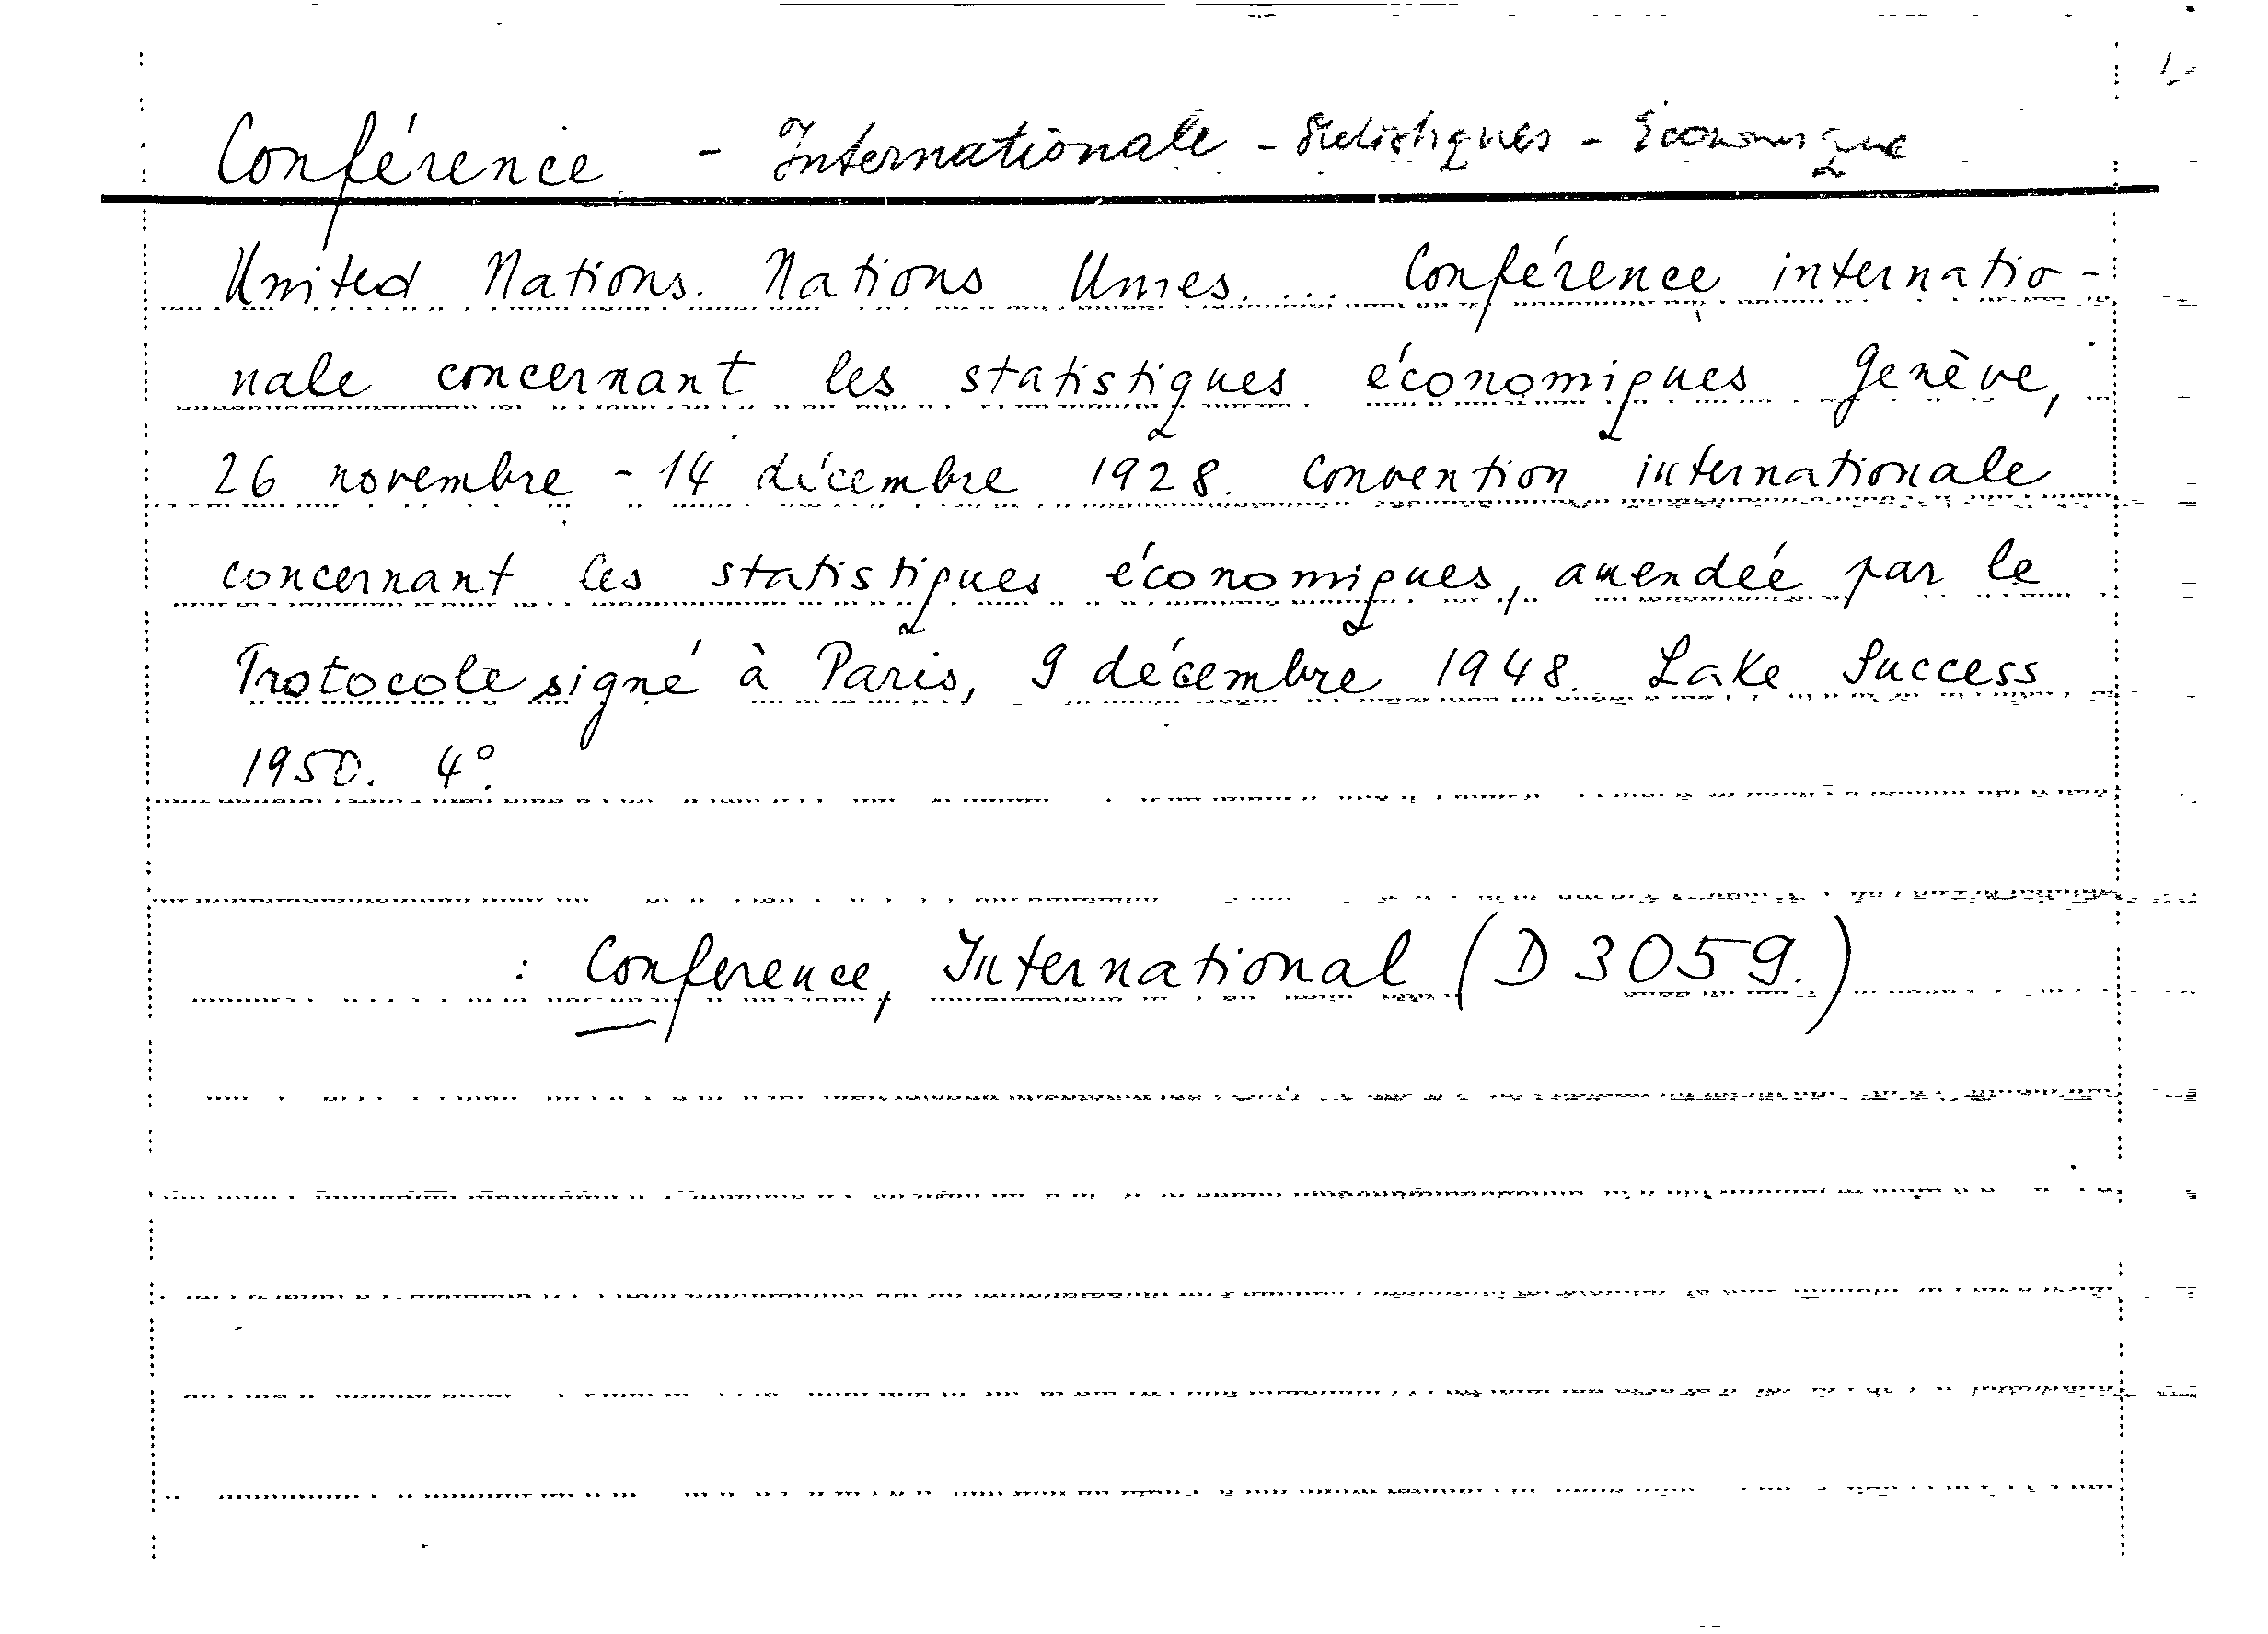 Conférence - Internationale - Statistiques - Économique
United Nations. Nations Unies. ... Conférence internatio-
nale concernant les statistiques économiques Genève,
26 novembre - 14 décembre 1928. Convention internationale
concernant les statistiques économiques, amendée par le
Protocole signé à Paris, 9 décembre 1948. Lake Success
1950. 4°.
: Conference, International (D 3059.)